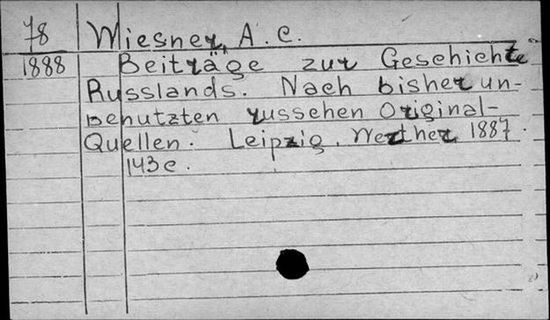 78 Wiesner, A. C.
1888 Beiträge zur Geschichte
Russlands. Nach bisher un-
benutzten russchen Original-
Quellen. Leipzig, Werther, 1887.
143 c.